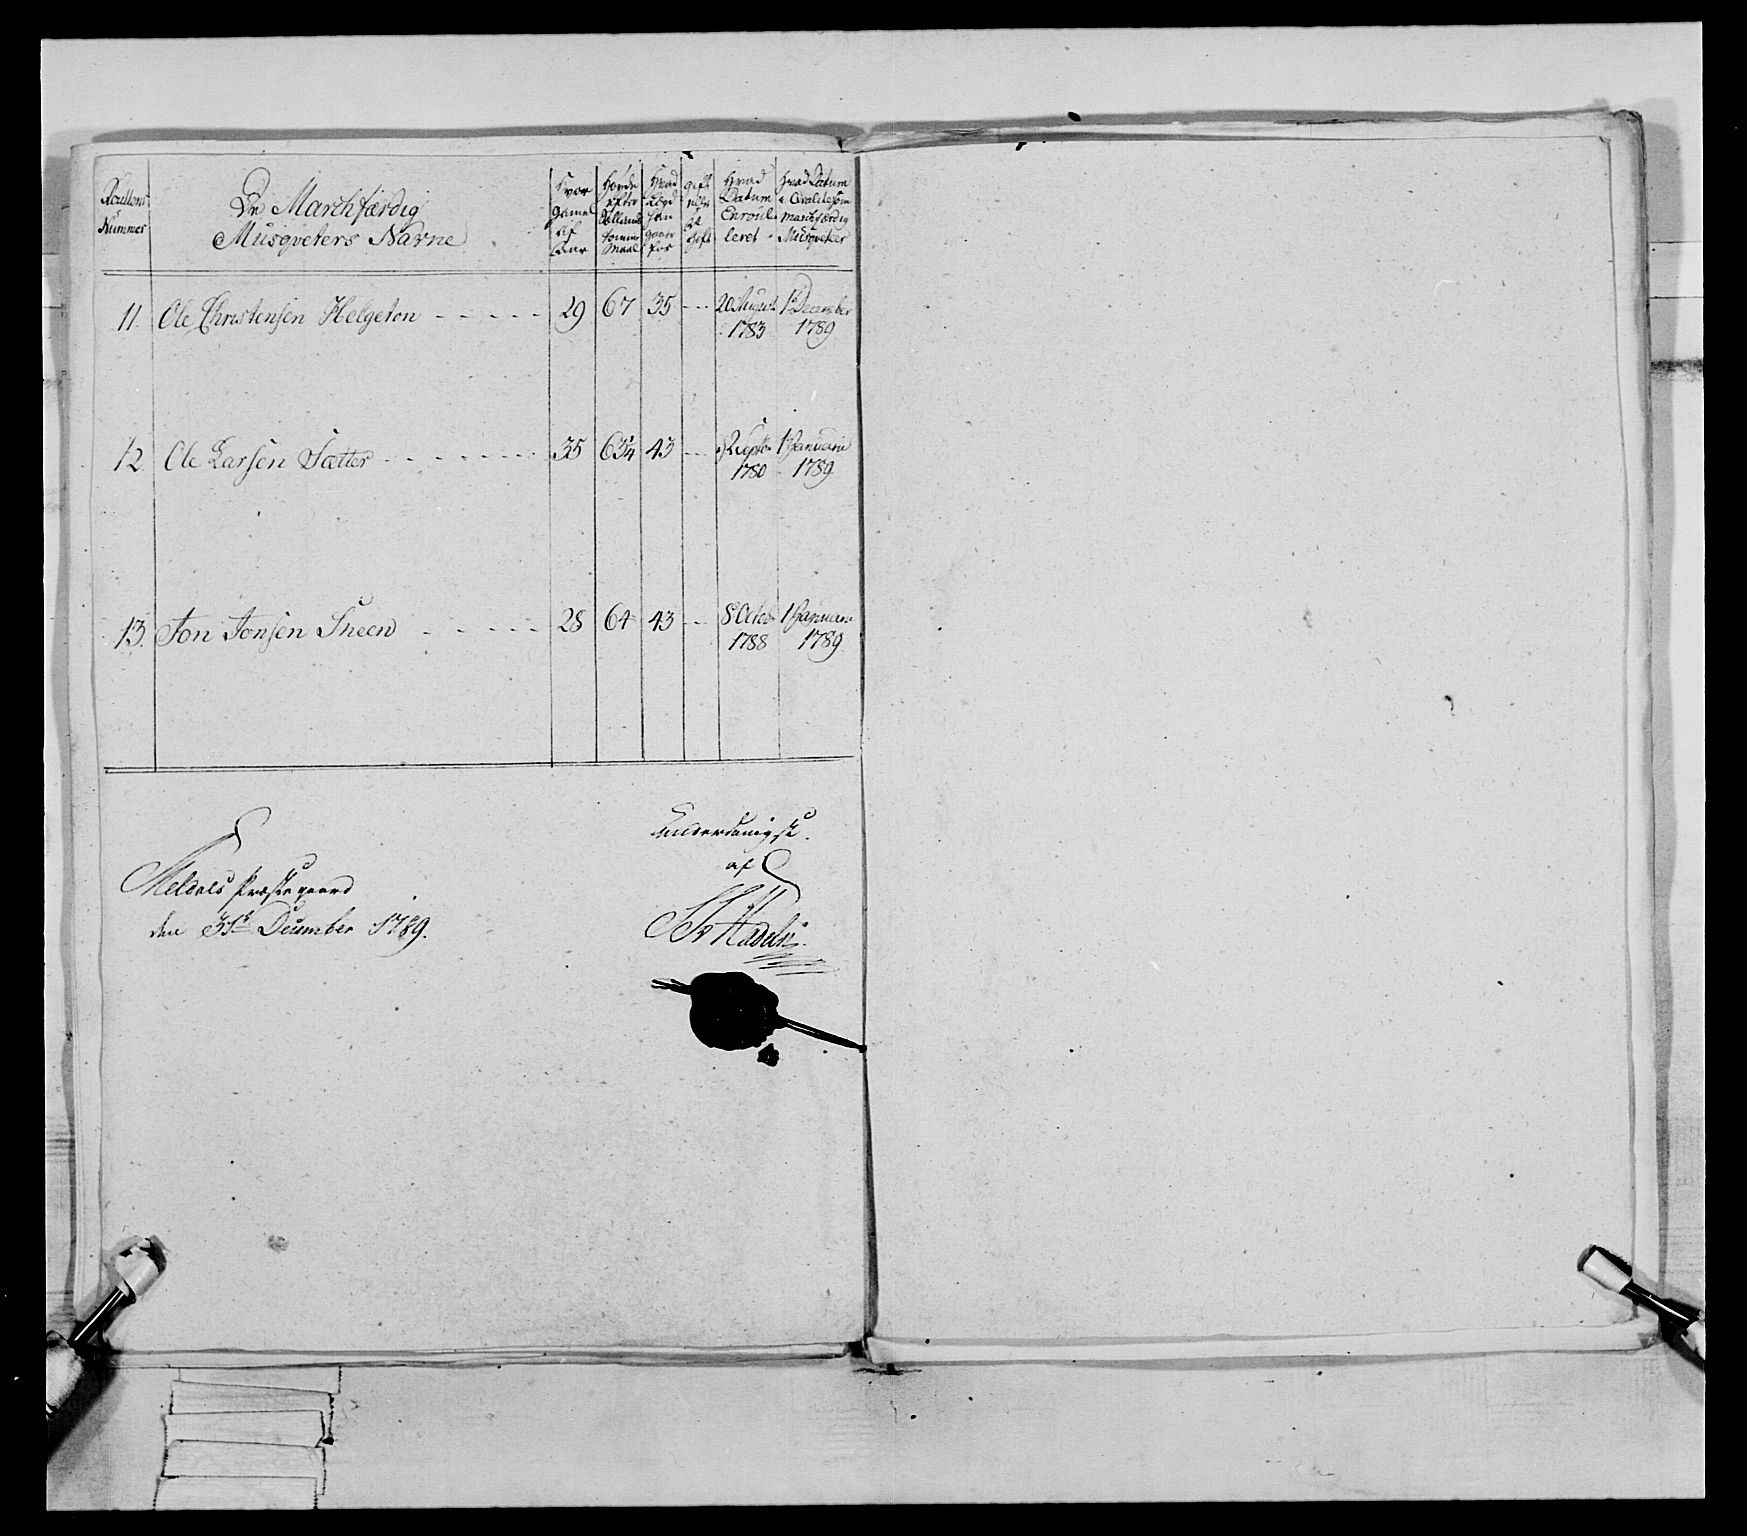 Roullens Nummer
De Marchfærdig
Musqveters Navne
Hvor gamel af Aar
Høyde efter Tolland tomme Maal
Hvad Lægd han gaaer for
gift eller u gift
Hvad Datum Enroulleret
Hvad Datum i Qvalite som marchfærdig Musqveteer
11. Ole Christensen Helgeton - - - - - 29 67 35 - - 20 August 1783 1de December 1789
12. Ole Larsen Sætter - - - - - - - 35 63 1/4 43 - - Septbr 1780 1 Januarii 1789
13. Jon Jonsen Sneen - - - - - 28 64 43 - - 8 Octob 1788 1 Januarii 1789
Underdanigst.
af
Meldals Præstegaard
den 31te December 1789.